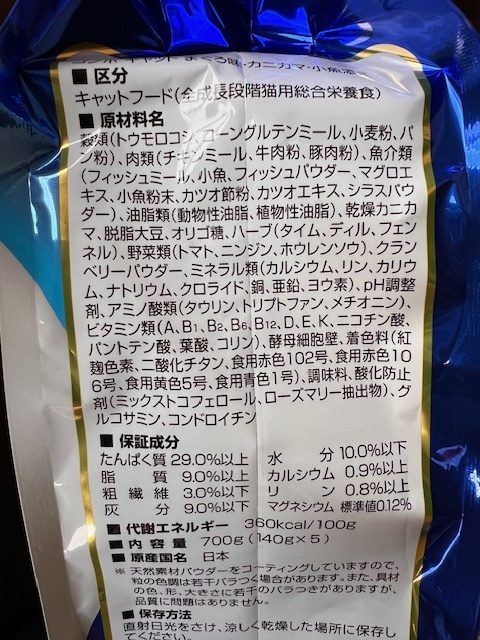 コンボ キャット まぐろ味・カニカマ・小魚添
■ 区分
キャットフード(全成長段階猫用総合栄養食)
■ 原材料名
穀類(トウモロコシ、コーングルテンミール、小麦粉、パ
ン粉)、肉類(チキンミール、牛肉粉、豚肉粉)、魚介類
(フィッシュミール、小魚、フィッシュパウダー、マグロエ
キス、小魚粉末、カツオ節粉、カツオエキス、シラスパウ
ダー)、油脂類(動物性油脂、植物性油脂)、乾燥カニカ
マ、脱脂大豆、オリゴ糖、ハーブ(タイム、ディル、フェン
ネル)、野菜類(トマト、ニンジン、ホウレンソウ)、クラン
ベリーパウダー、ミネラル類(カルシウム、リン、カリウ
ム、ナトリウム、クロライド、銅、亜鉛、ヨウ素)、pH調整
剤、アミノ酸類(タウリン、トリプトファン、メチオニン)、
ビタミン類(A、B1、B2、B6、B12、D、E、K、ニコチン酸、
パントテン酸、葉酸、コリン)、酵母細胞壁、着色料(紅
麹色素、二酸化チタン、食用赤色102号、食用赤色10
6号、食用黄色5号、食用青色1号)、調味料、酸化防止
剤(ミックストコフェロール、ローズマリー抽出物)、グ
ルコサミン、コンドロイチン
■ 保証成分
たんぱく質 29.0%以上 水分 10.0%以下
脂質 9.0%以上 カルシウム 0.9%以上
粗繊維 3.0%以下 リン 0.8%以上
灰分 9.0%以下 マグネシウム 標準値0.12%
■ 代謝エネルギー 360kcal/100g
■ 内容量 700g(140g×5)
■ 原産国名 日本
※ 天然素材パウダーをコーティングしていますので、
粒の色調は若干バラつく場合があります。また、具材
の色、形、大きさに若干のバラつきがありますが、
品質に問題はありません。
■ 保存方法
直射日光をさけ、涼しく乾燥した場所に保存し
てください。